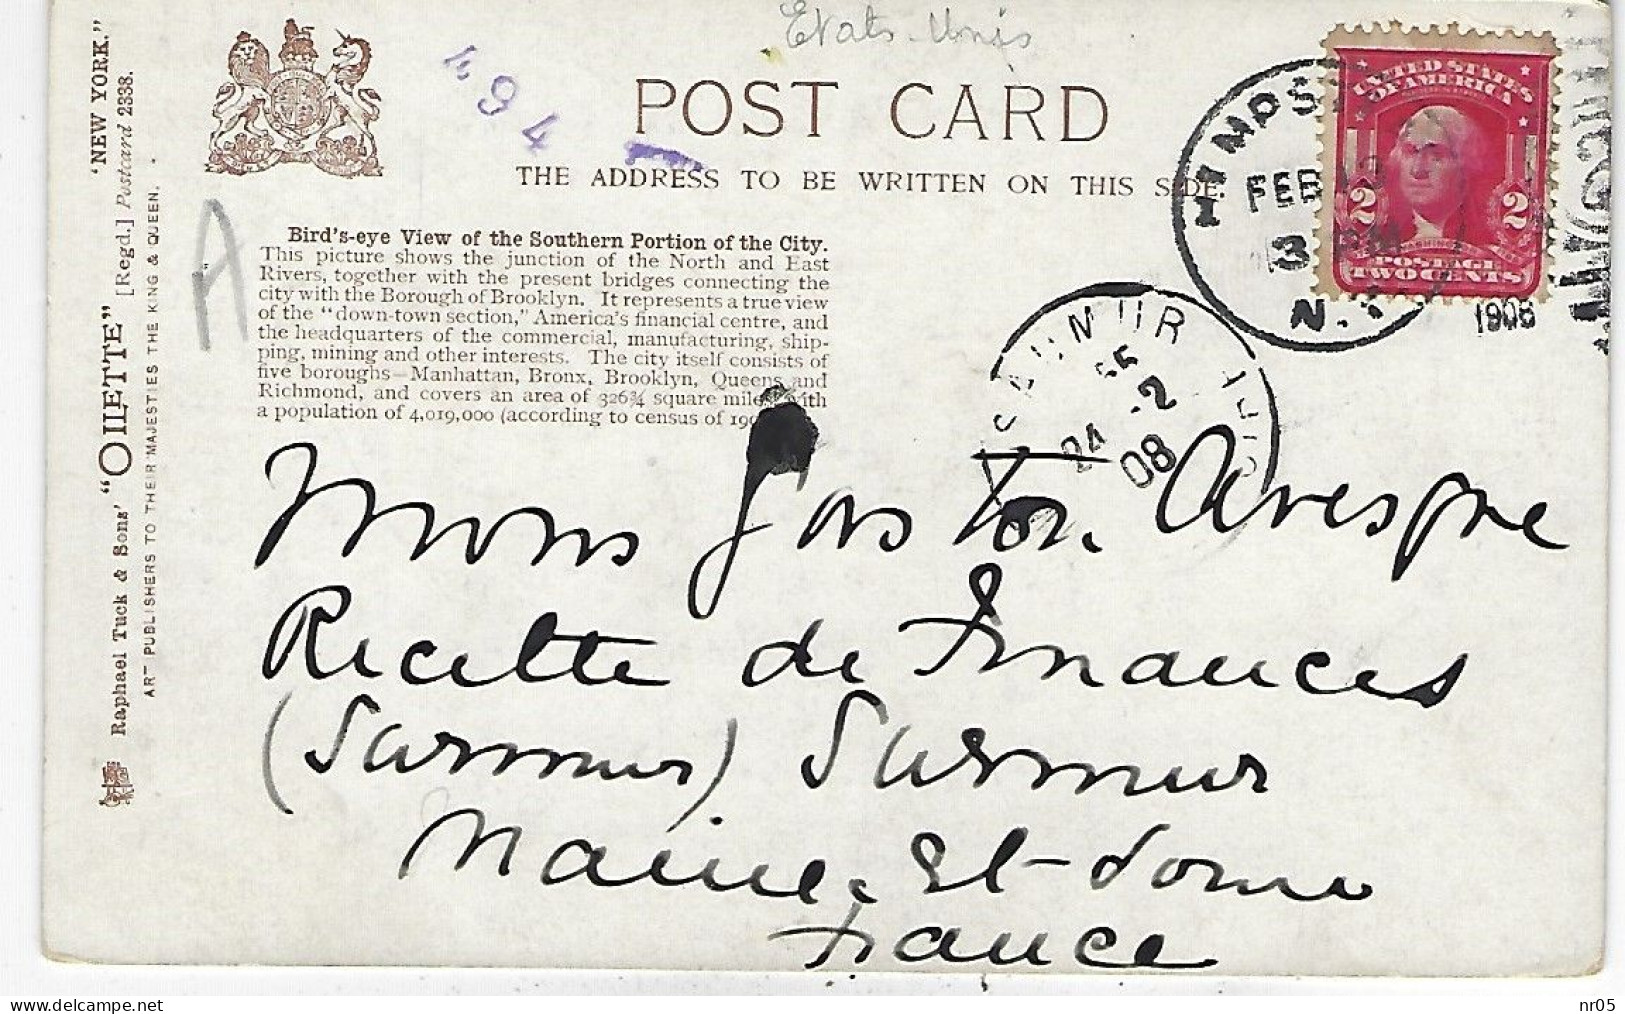 Etats-Unis
494
POST CARD
THE ADDRESS TO BE WRITTEN ON THIS SIDE.
UNITED STATES
OF AMERICA
2 2
POSTAGE
TWO CENTS
FEB
3 PM
N.Y.
1908
"NEW YORK."
Raphael Tuck & Sons' "OILETTE" [Regd.] Postcard 2338.
ART PUBLISHERS TO THEIR MAJESTIES THE KING & QUEEN.
A
Bird's-eye View of the Southern Portion of the City.
This picture shows the junction of the North and East
Rivers, together with the present bridges connecting the
city with the Borough of Brooklyn. It represents a true view
of the "down-town section," America's financial centre, and
the headquarters of the commercial, manufacturing, ship-
ping, mining and other interests. The city itself consists of
five boroughs—Manhattan, Bronx, Brooklyn, Queens and
Richmond, and covers an area of 326¾ square miles with
a population of 4,019,000 (according to census of 190
SAUMUR
24 -2
08
Mons Gaston Avesque
Recette de Finances
(Saumur) Saumur
Maine et-Loire
France
nr05